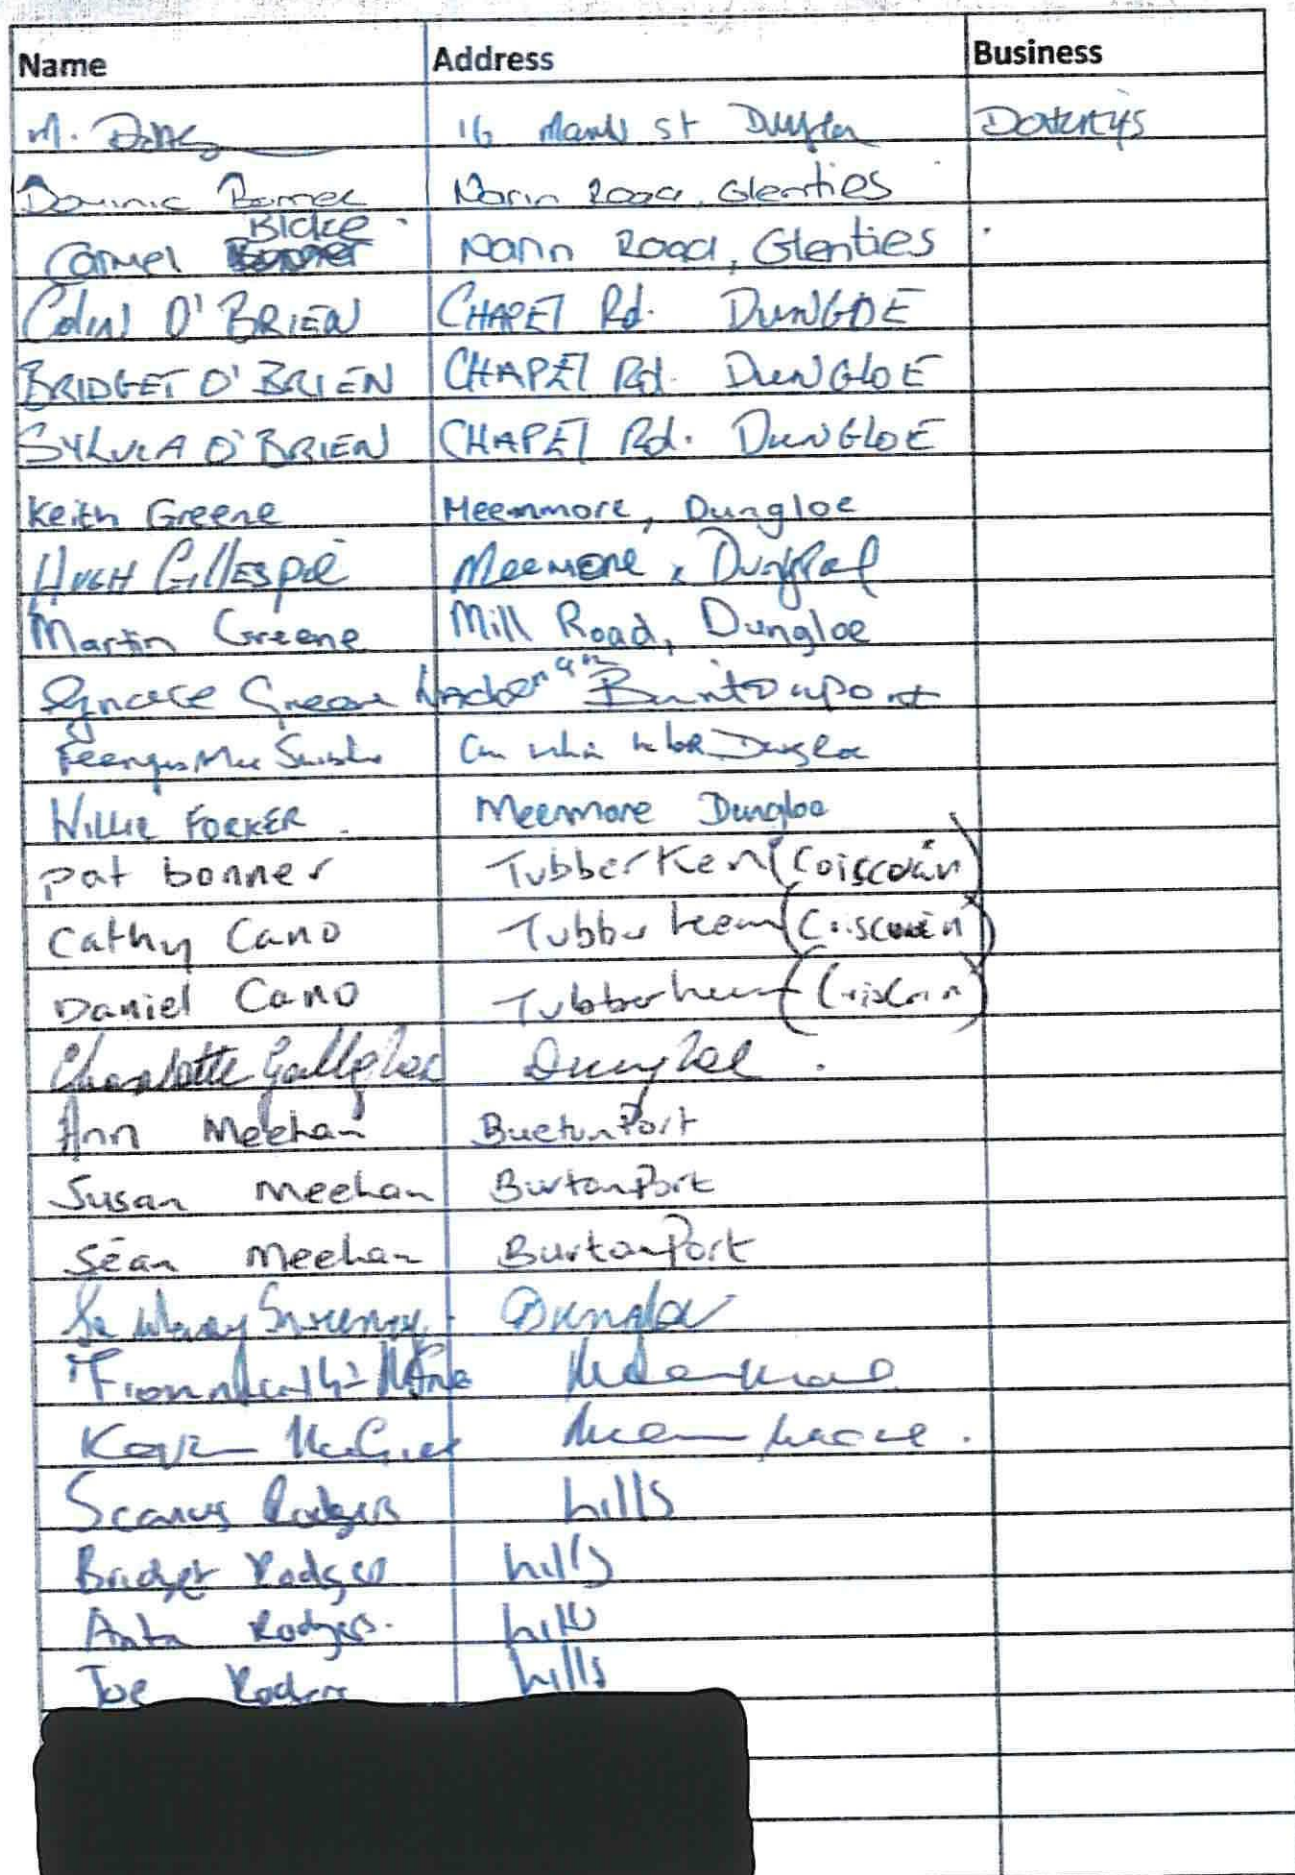 Name Address Business
M. 16 St
Dominic Narin Road, Glenties
Blake
Carmel Narin Road, Glenties
Colin O'BRIEN CHAPEL Rd. DUNGLOE
BRIDGET O'BRIEN CHAPEL Rd. DUNGLOE
SYLVIA O'BRIEN CHAPEL Rd. DUNGLOE
Keith Greene Meenmore, Dungloe
HUGH GILLESPIE Meemore, Dungloe
Martin Greene Mill Road, Dungloe
Greene Burtonport
Dungloe
Willie FORKER Meenmore Dungloe
Pat bonner TubberKeen (Coiscéain)
Cathy Cano Tubberkeen
Daniel Cano Tubberkeen
Charlotte Gallagher Dungloe
Ann Meehan BurtonPort
Susan Meehan BurtonPort
Séan Meehan BurtonPort
Sweeney Dungloe
Meenmore
Meenmore.
Seamus Rodgers hills
Bridget Rodgers hills
Rodgers. hills
Joe Rodgers hills